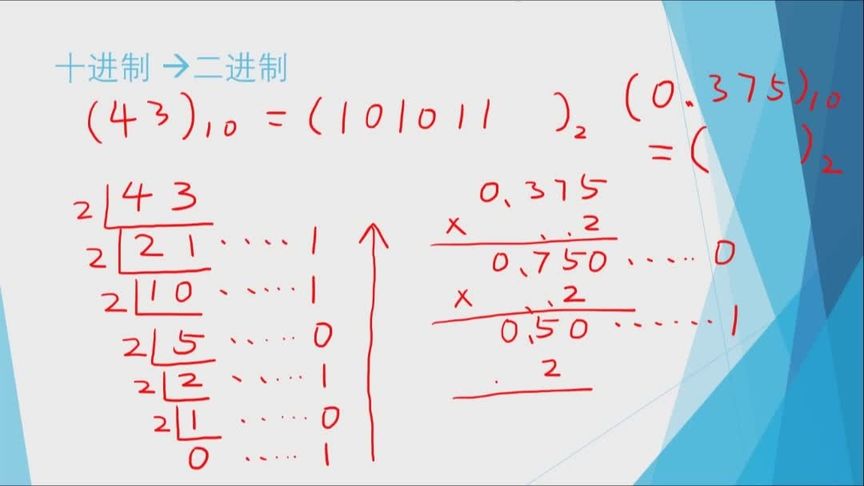 十进制 →二进制
(43)₁₀ = (101011 )₂
(0.375)₁₀
= ( )₂
2 43
2 21 ····1
2 10 ····1
2 5 ·····0
2 2 ·····1
2 1 ·····0
0 ·····1
0.375
× 2
0.750 ·····0
× 2
0.50 ······1
2